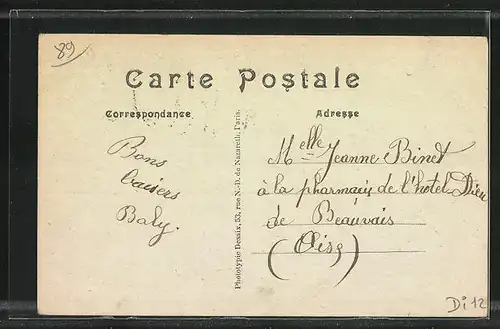 89
Carte Postale
Correspondance
Adresse
Bons
baisers
Baly.
Phototypie Dessaix, 53, rue N.-D. de Nazareth, Paris.
Melle Jeanne Binet
à la pharmacie de l'hotel-Dieu
de Beauvais
(Oise)
Di 12